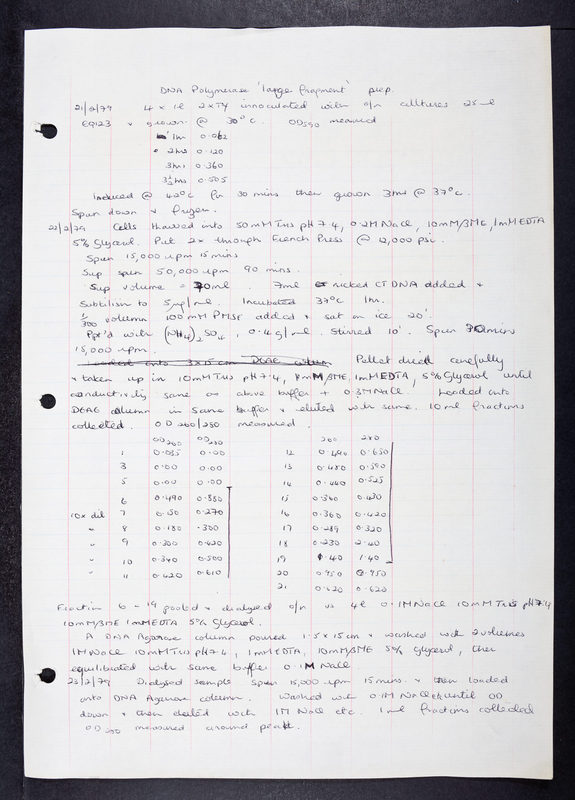 DNA Polymerase 'large fragment' prep.
21/2/79 4 x 1l 2xTY innoculated with o/n cultures 25ml
EQ123 & grown @ 30°C. OD590 measured
1hr 0.062
2hrs 0.120
3hrs 0.360
3½hrs 0.505
Induced @ 42°C for 30 mins then grown 3hrs @ 37°C.
Spun down & frozen.
22/2/79 Cells thawed into 50mM Tris pH 7.4, 0.2M NaCl, 10mM βME, 1mM EDTA
5% Glycerol. Put 2x through French Press @ 12,000 psi.
Spun 15,000 rpm 15 mins
Sup spun 50,000 rpm 90 mins.
Sup volume = 70ml. 7ml nicked CT DNA added &
Subtilisin to 5µg/ml. Incubated 37°C 1hr.
1/300 volumn 100mM PMSF added & sat on ice 20'.
Ppt'd with (NH4)2SO4, 0.4g/ml. Stirred 10'. Spun 30mins
15,000 rpm.
Loaded onto 3x15cm DEAE column Pellet dried carefully
& taken up in 10mM Tris pH 7.4, 10mM βME, 1mM EDTA, 5% Glycerol until
conductivity same as above buffer + 0.3M NaCl. Loaded onto
DEAE column in same buffer & eluted with same. 10ml fractions
collected. OD 260/280 measured.
OD260 OD280 260 280
1 0.035 0.00 12 0.490 0.650
3 0.00 0.00 13 0.450 0.590
5 0.00 0.00 14 0.440 0.525
6 0.490 0.880 15 0.360 0.430
10x dil 7 0.150 0.270 16 0.360 0.420
" 8 0.180 .300 17 0.289 0.320
" 9 0.300 0.420 18 0.230 2.40
" 10 0.340 0.500 19 1.40 1.40
" 11 0.420 0.610 20 0.950 0.950
21 0.620 0.620
Fraction 6 - 19 pooled & dialysed o/n vs 4l 0.1M NaCl 10mM Tris pH 7.4
10mM βME 1mM EDTA 5% Glycerol.
A DNA Agarose column poured 1.5 x 15cm & washed with 2 volumes
1M NaCl 10mM Tris pH 7.4, 1mM EDTA, 10mM βME 5% glycerol, then
equilibrated with same buffer 0.1M NaCl
23/2/79 Dialysed sample spun 15,000 rpm 15 mins. & then loaded
onto DNA Agarose column. Washed with 0.1M NaCl until OD
down & then eluted with 1M NaCl etc. 1ml fractions collected
OD280 measured around peak.